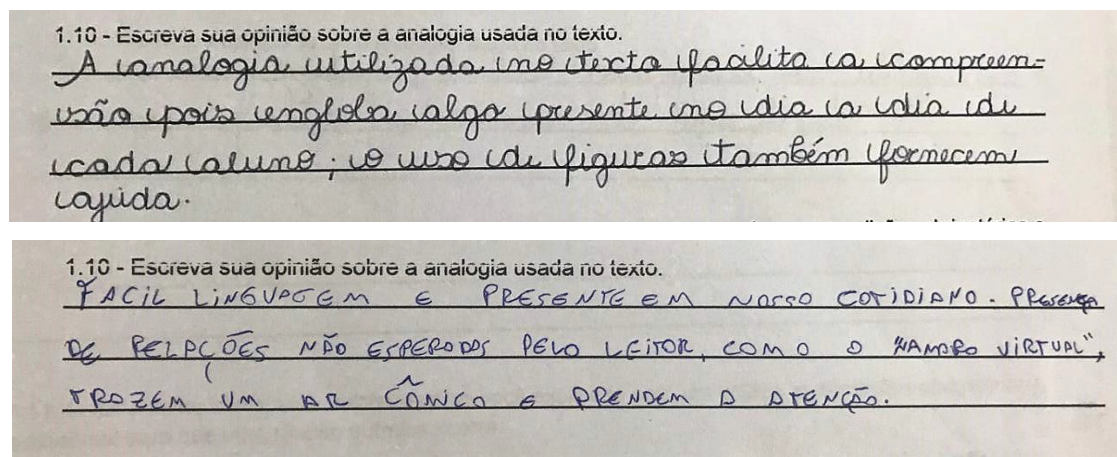 1.10 - Escreva sua opinião sobre a analogia usada no texto.
A analogia utilizada no texto facilita a compreen=
são pois engloba algo presente no dia a dia de
cada aluno; o uso de figuras também fornecem
ajuda.
1.10 - Escreva sua opinião sobre a analogia usada no texto.
FACIL LINGUAGEM E PRESENTE EM NOSSO COTIDIANO. PRESENÇA
DE RELAÇÕES NÃO ESPERADAS PELO LEITOR, COMO O "NAMORO VIRTUAL",
TRAZEM UM AR CÔMICO E PRENDEM A ATENÇÃO.